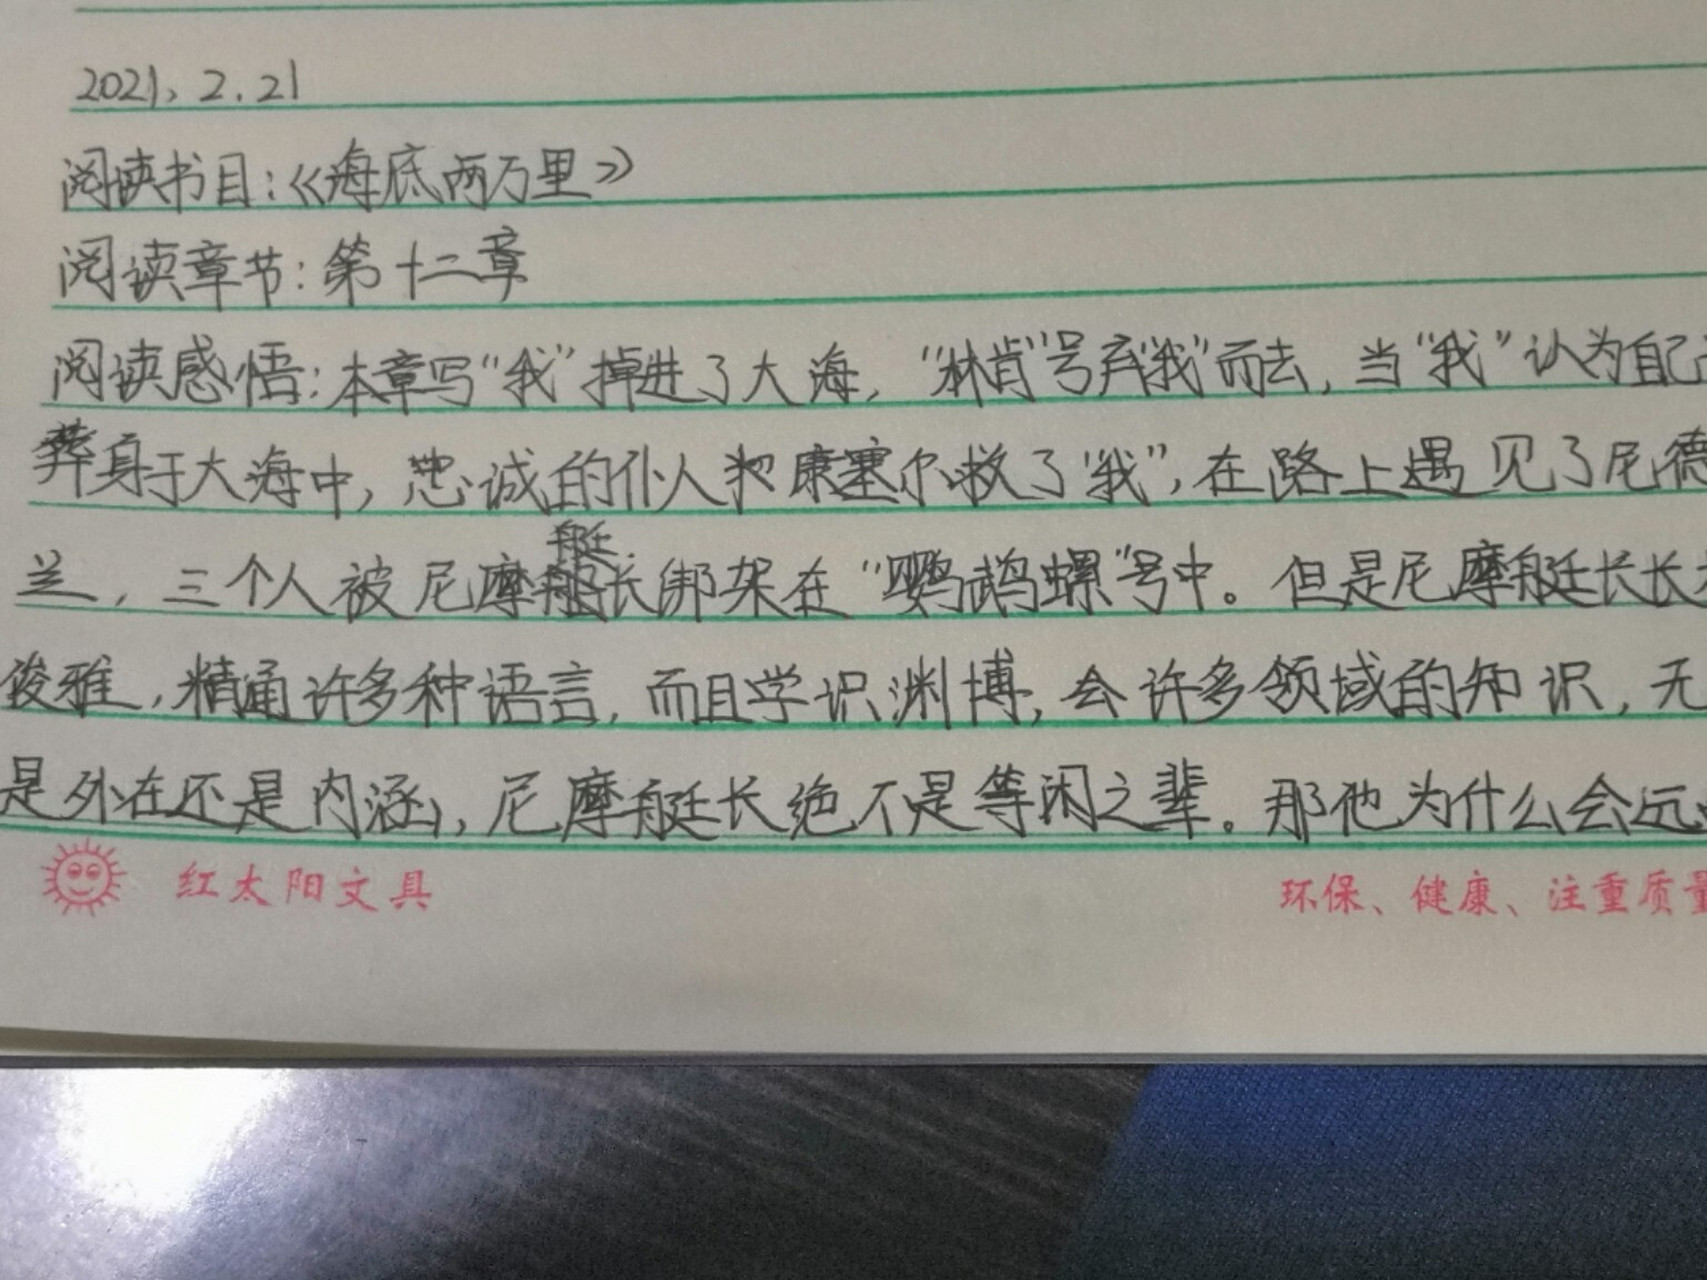 2021、2.21
阅读书目:《海底两万里》
阅读章节:第十二章
阅读感悟:本章写“我”掉进了大海,“林肯”号弃“我”而去,当“我”认为自己
葬身于大海中,忠诚的仆人康塞尔救了“我”,在路上遇见了尼德
兰,三个人被尼摩艇长绑架在“鹦鹉螺”号中。但是尼摩艇长长
俊雅,精通许多种语言,而且学识渊博,会许多领域的知识,无
是外在还是内涵,尼摩艇长绝不是等闲之辈。那他为什么会远
红太阳文具
环保、健康、注重质量